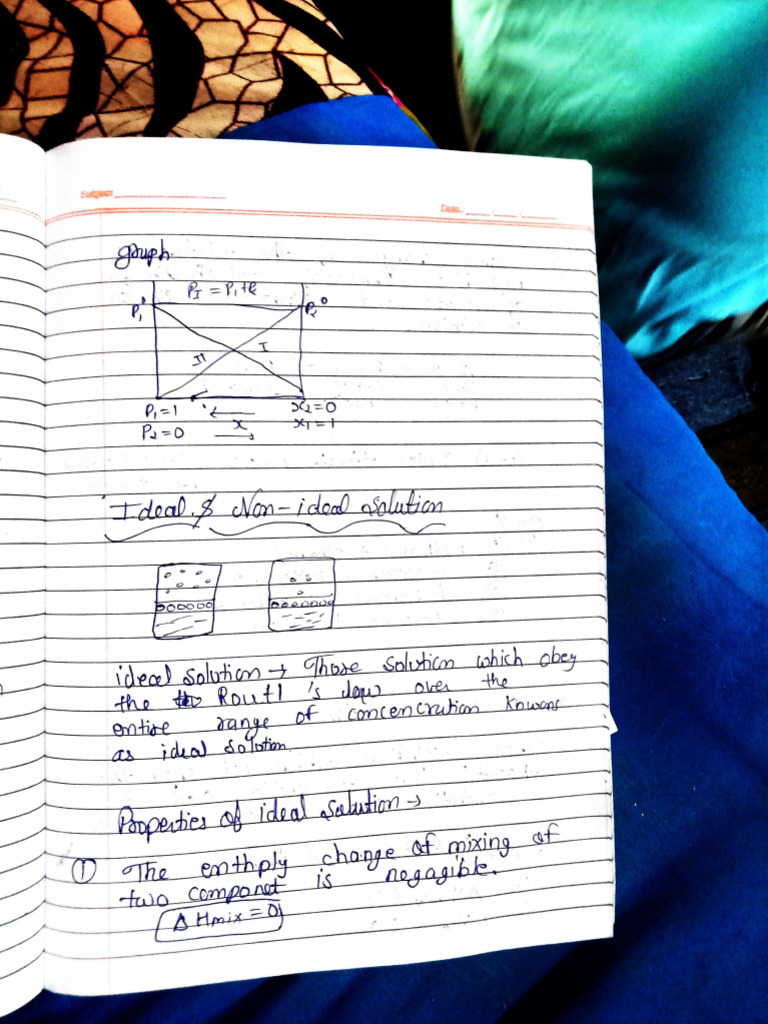 Subject
Date
graph
PI = P1+P2
P1°
P2°
II
I
P1=1
x2=0
P2=0
x
x1=1
Ideal & Non-ideal solution
ideal solution → Those solution which obey
the Routl 's law over the
entire range of concencration knowans
as ideal solution
Properties of ideal solution →
① The enthply change of mixing of
two componet is negagible.
ΔHmix = 0